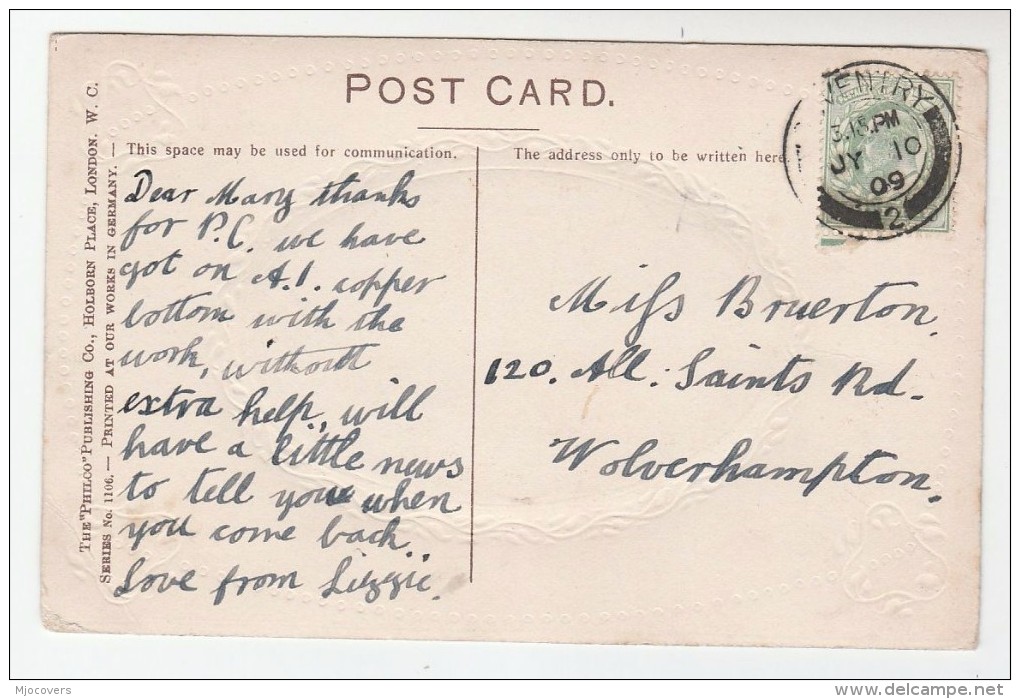 POST CARD.
This space may be used for communication.
The address only to be written here.
THE "PHILCO" PUBLISHING CO., HOLBORN PLACE, LONDON. W. C.
SERIES No. 1106. — PRINTED AT OUR WORKS IN GERMANY. —
Dear Mary thanks
for P.C. we have
got on A.1. copper
bottom with the
work, without
extra help, will
have a little news
to tell you when
you come back
Love from Lizzie.
VENTRY
3.15.PM
JY 10
09
2
Miss Bruerton,
120. All. Saints Rd.
Wolverhampton.
Mjocovers
delcampe.net